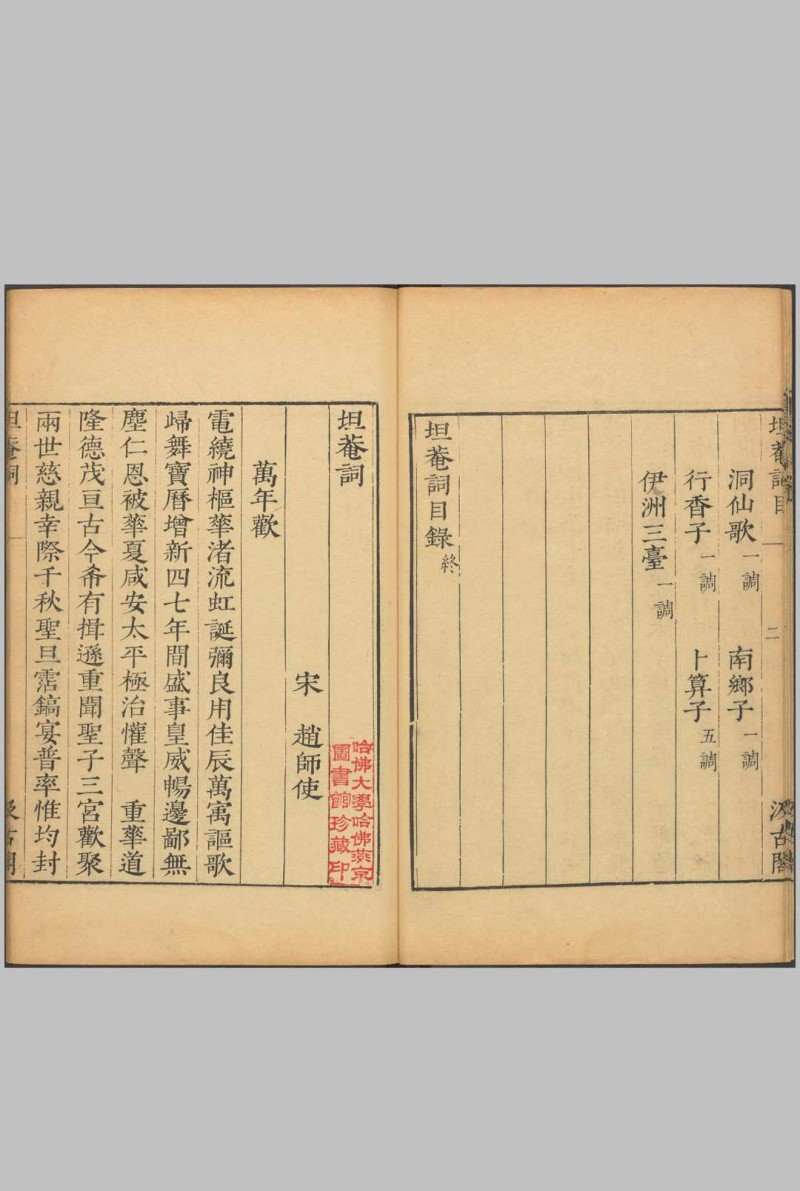 坦菴詞目 二 汲古閣
洞仙歌一調 南鄉子一調
行香子一調 卜算子五調
伊洲三臺一調
坦菴詞目錄終
坦菴詞
宋 趙師使
哈佛大學哈佛燕京
圖書館珍藏印
萬年歡
電繞神樞華渚流虹誕彌良用佳辰萬寓謳歌
歸舞寶曆增新四七年間盛事皇威暢邊鄙無
塵仁恩被華夏咸安太平極治懽聲 重華道
隆德茂亘古今希有揖遜重聞聖子三宮歡聚
兩世慈親幸際千秋聖旦霑鎬宴普率惟均封
坦菴詞 一 汲古閣